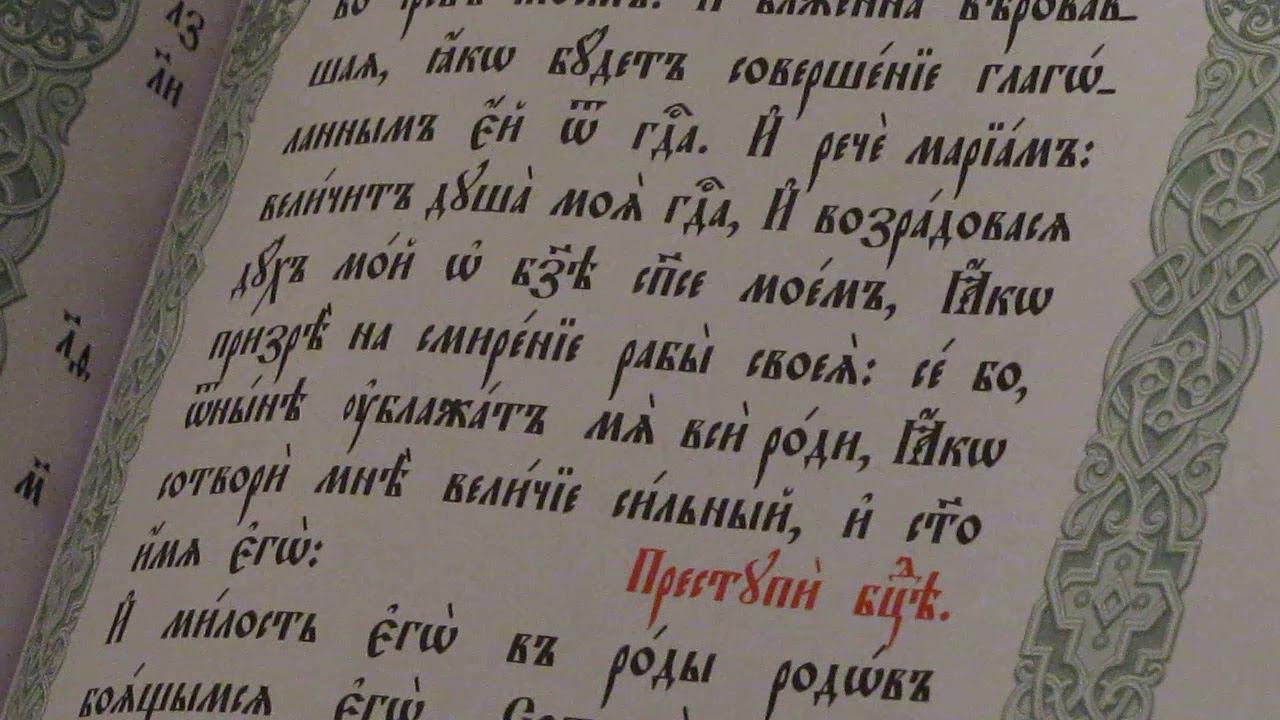 л҃з
л҃и
л҃д,
м҃
во чревѣ твоемъ. И блаженна вѣровав_
шая, ꙗ҆́кѡ бꙋ́детъ соверше́нїе глагѡ́_
ланнымъ є҆́й ѿ гдⷭ҇а. И҆ речѐ марїа́мъ:
вели́читъ дꙋша̀ моѧ̀ гдⷭ҇а, И҆ возра́довасѧ
дꙋ́хъ мо́й ѡ҆ бз҃ѣ сп҃се мое́мъ, Ꙗ҆́кѡ
призрѣ̀ на смире́нїе рабы̀ своеѧ̀: се́ бо,
ѿны́нѣ ᲂу҆блажа́тъ мѧ̀ всѝ ро́ди, Ꙗ҆́кѡ
сотворѝ мнѣ̀ вели́чїе си́льный, и҆ ст҃о
и҆́мѧ є҆гѡ̀:
Престꙋпѝ бцⷣѣ.
И҆ ми́лость є҆гѡ̀ въ ро́ды родѡ́въ
боѧ́щымсѧ є҆гѡ̀